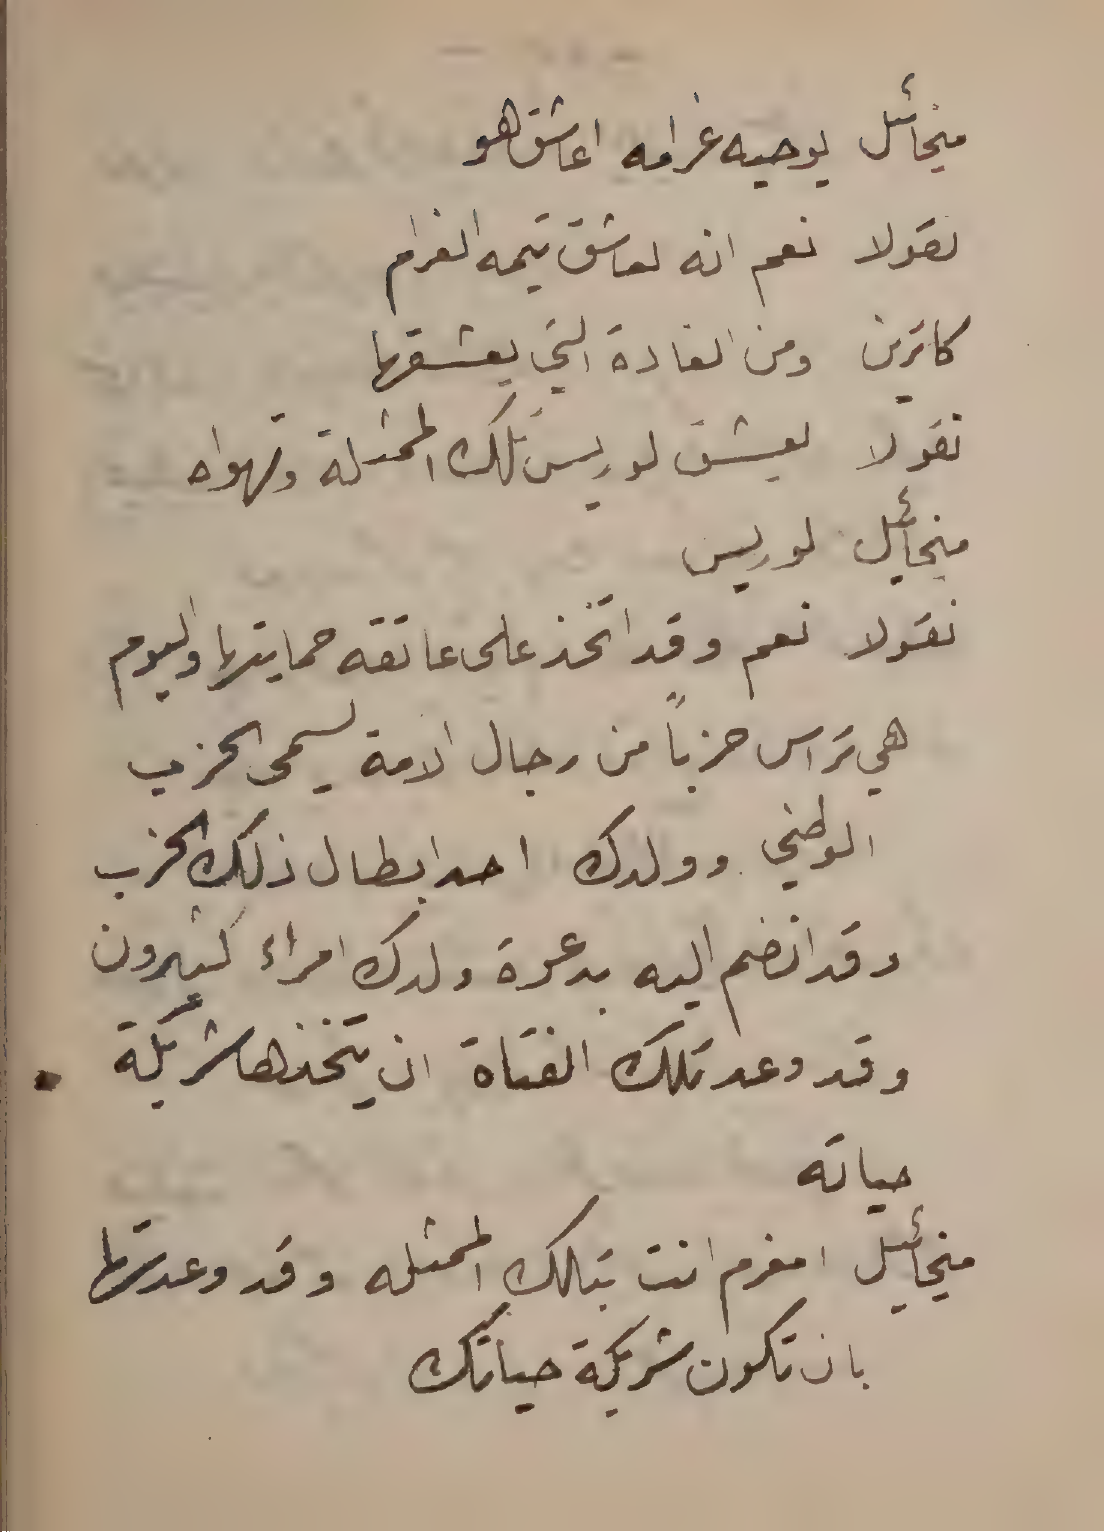 ميخائيل يوحيه غرامه اعاشق هو
نقولا نعم انه لعاشق تيمه الغرام
كاترين ومن الغادة التي يعشقها
نقولا يعشق لوريس تلك الممثلة وتهواه
ميخائيل لوريس
نقولا نعم وقد اتخذ على عاتقه حمايتها واليوم
هي ترأس حزباً من رجال الامة يسمى الحزب
الوطني وولدك احد ابطال ذلك الحزب
وقد انضم اليه بدعوة ولدك امراء كثيرون
وقد وعد تلك الفتاة ان يتخذها شريكة
حياته
ميخائيل امغرم انت بتلك الممثله وقد وعدتها
بان تكون شريكة حياتك